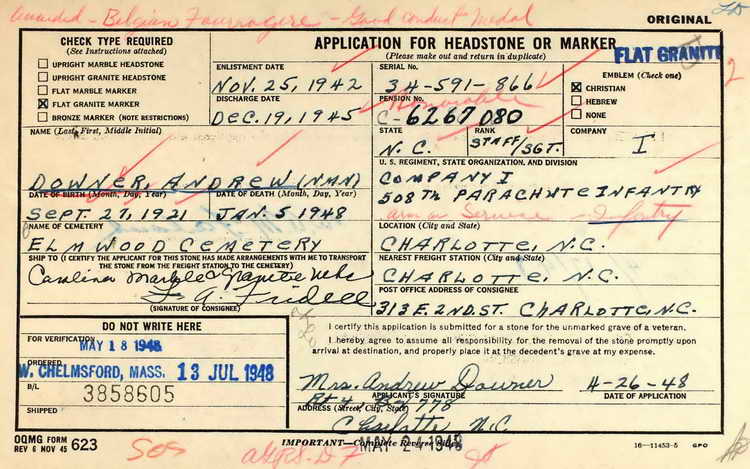 Awarded - Belgian Fourragere - Good Conduct Medal
ORIGINAL
CHECK TYPE REQUIRED
(See Instructions attached)
UPRIGHT MARBLE HEADSTONE
UPRIGHT GRANITE HEADSTONE
FLAT MARBLE MARKER
FLAT GRANITE MARKER
BRONZE MARKER (NOTE RESTRICTIONS)
APPLICATION FOR HEADSTONE OR MARKER
(Please make out and return in duplicate)
FLAT GRANITE
2
ENLISTMENT DATE
NOV. 25, 1942
DISCHARGE DATE
DEC. 19, 1945
SERIAL NO.
34-591-866
Honorable
PENSION NO.
C-6267080
EMBLEM (Check one)
CHRISTIAN
HEBREW
NONE
STATE
N.C.
RANK
STAFF/SGT.
COMPANY
I
NAME (Last, First, Middle Initial)
DOWNER, ANDREW (NMN)
U. S. REGIMENT, STATE ORGANIZATION, AND DIVISION
COMPANY I
508TH PARACHUTE INFANTRY
arm or Service - Infantry
DATE OF BIRTH (Month, Day, Year)
SEPT. 27, 1921
DATE OF DEATH (Month, Day, Year)
JAN. 5 1948
NAME OF CEMETERY
ELMWOOD CEMETERY
LOCATION (City and State)
CHARLOTTE, N.C.
SHIP TO (I CERTIFY THE APPLICANT FOR THIS STONE HAS MADE ARRANGEMENTS WITH ME TO TRANSPORT THE STONE FROM THE FREIGHT STATION TO THE CEMETERY)
Carolina Marble & Granite Wks
(SIGNATURE OF CONSIGNEE)
NEAREST FREIGHT STATION (City and State)
CHARLOTTE, N.C.
POST OFFICE ADDRESS OF CONSIGNEE
313 E. 2ND. ST. CHARLOTTE, N.C.
DO NOT WRITE HERE
FOR VERIFICATION
MAY 18 1948
ORDERED
W. CHELMSFORD, MASS. 13 JUL 1948
B/L
3858605
SHIPPED
I certify this application is submitted for a stone for the unmarked grave of a veteran.
I hereby agree to assume all responsibility for the removal of the stone promptly upon
arrival at destination, and properly place it at the decedent's grave at my expense.
Mrs. Andrew Downer
4-26-48
APPLICANT'S SIGNATURE
DATE OF APPLICATION
Rt 4, Box 778
ADDRESS (Street, City, State)
Charlotte N.C.
OQMG FORM
REV 6 NOV 45
623
IMPORTANT—Complete Reverse Side
MAY 24 1948
16—11453-5 GPO